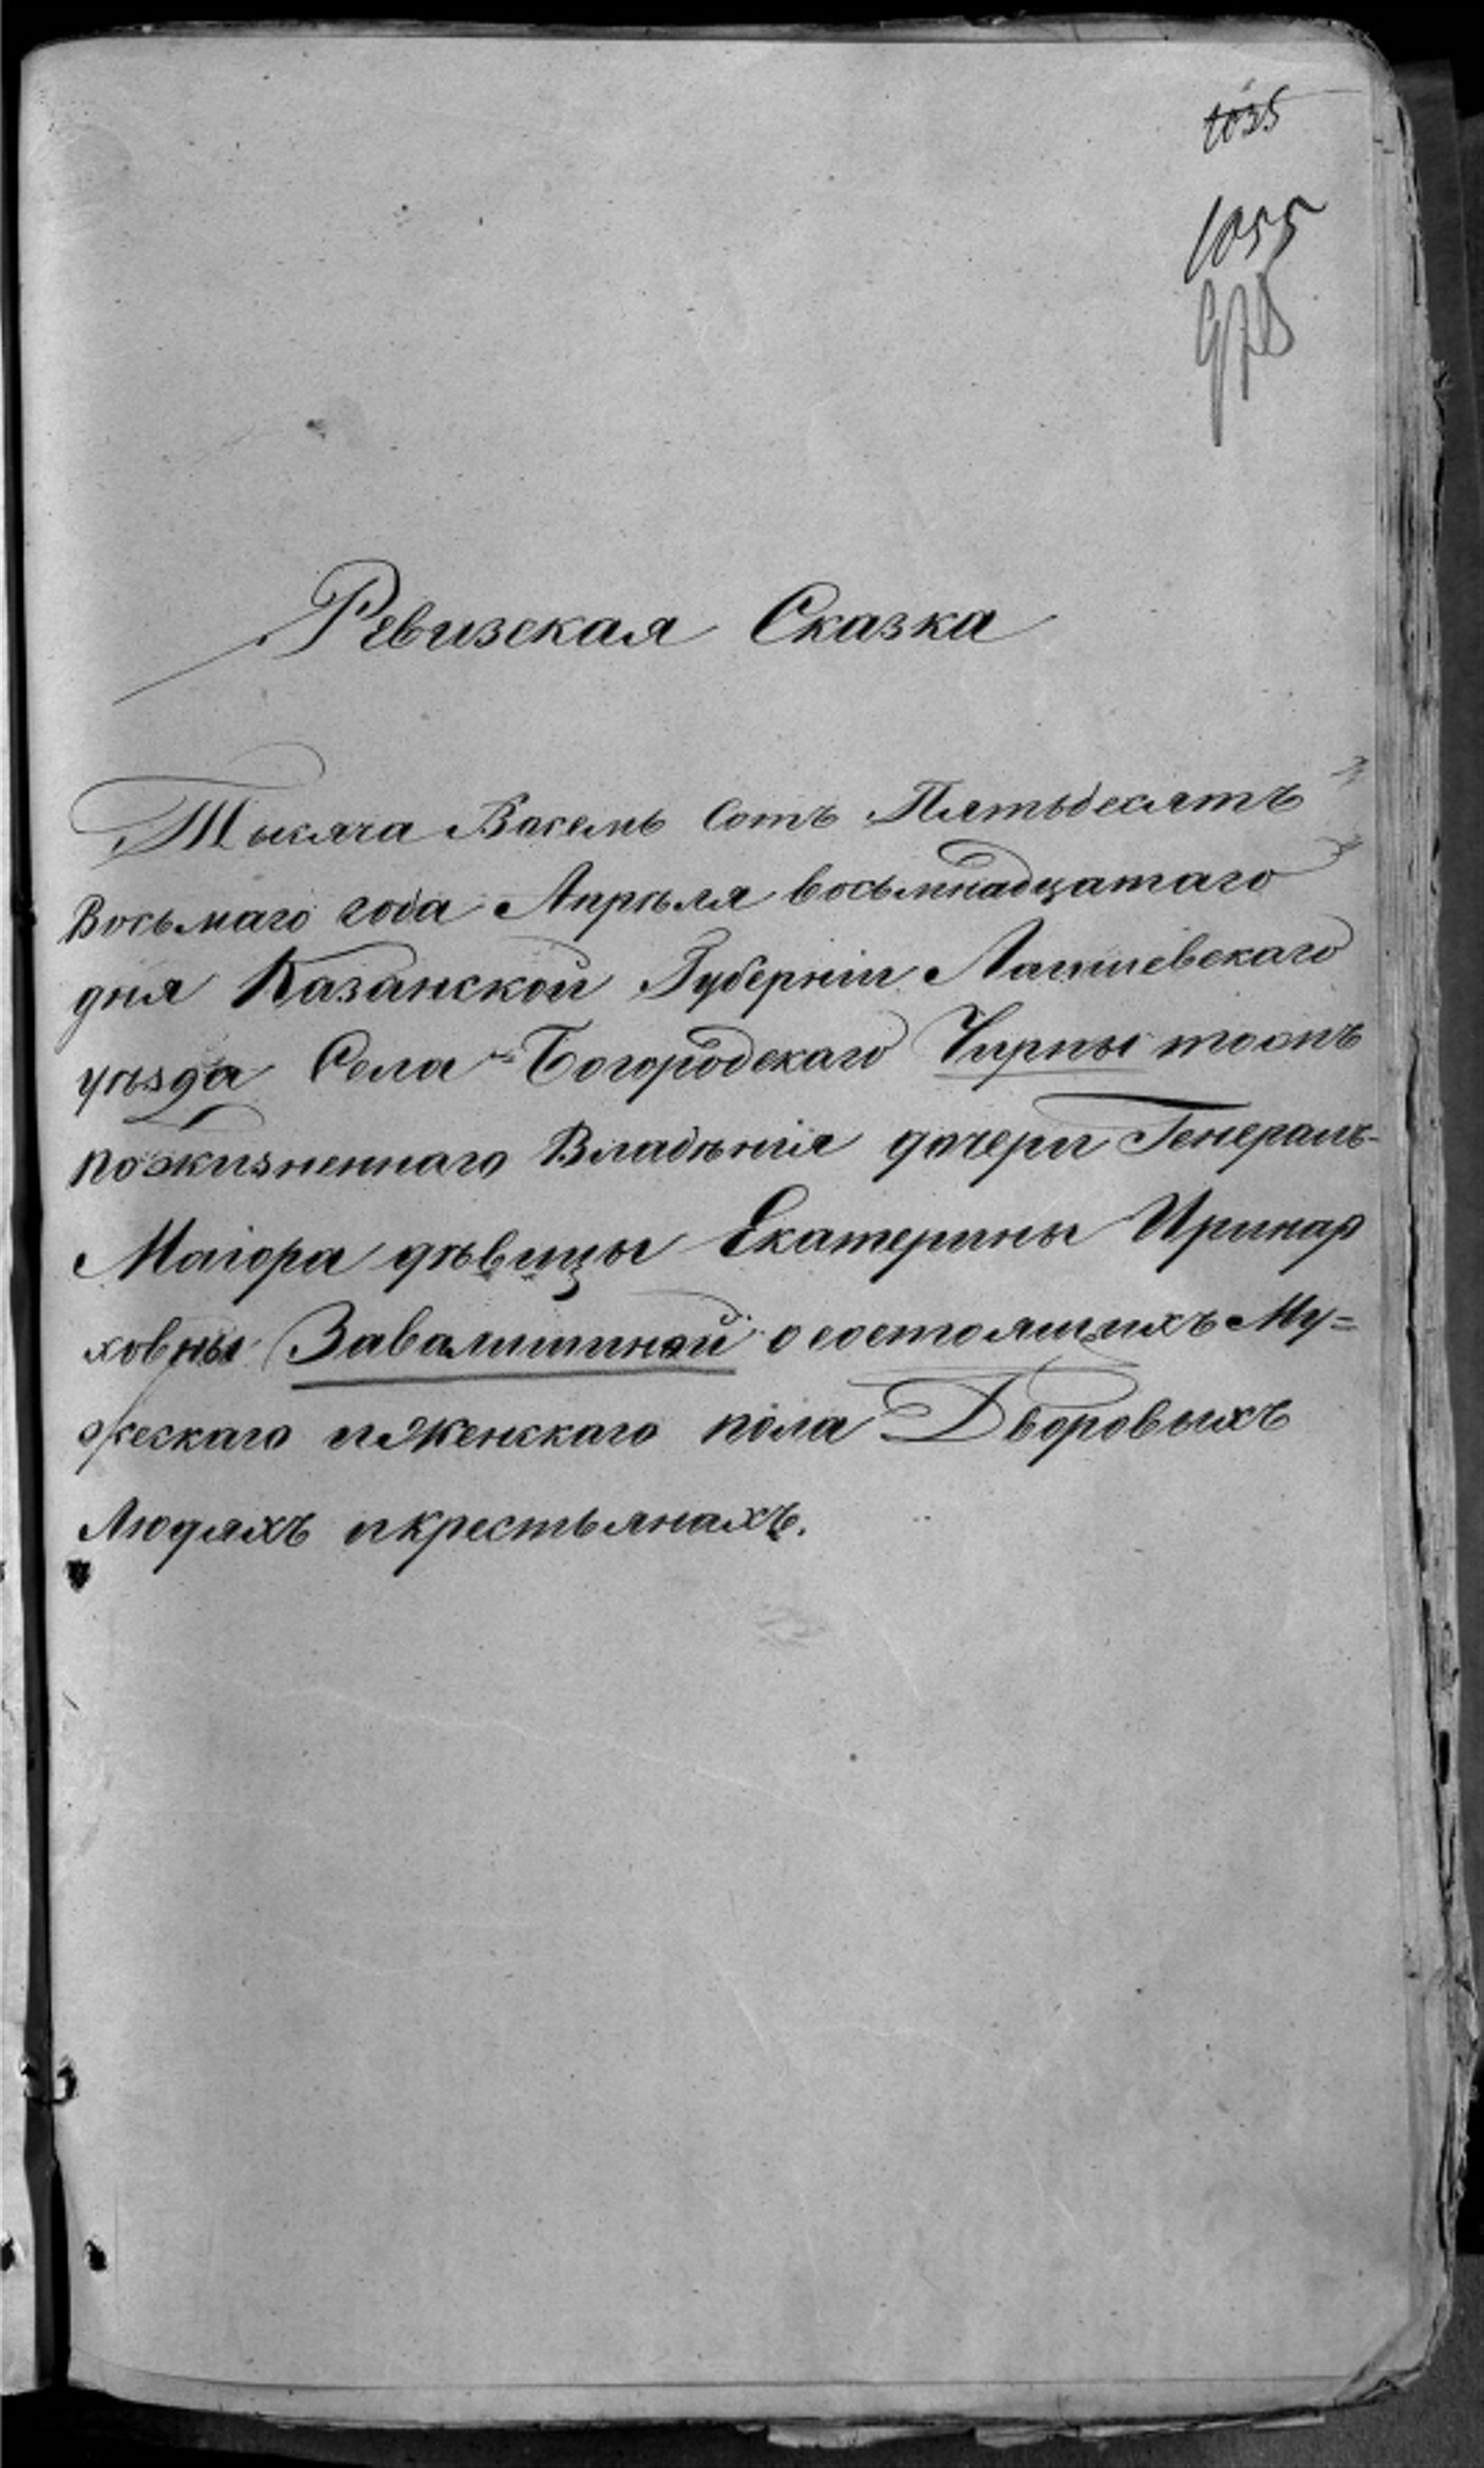 1035
1055
978
Ревизская Сказка
Тысяча Восемь Сотъ Пятьдесятъ
Восьмаго года Апрѣля восьмнадцатаго
дня Казанской Губерніи Лаишевскаго
уѣзда Села Богородскаго Чирпы тожъ
пожизненнаго Владѣнія дочери Генералъ-
Маіора дѣвицы Екатерины Иринар
ховны Завалишиной о состоящихъ Му=
жескаго и Женскаго пола Дворовыхъ
Людяхъ и крестьянахъ.